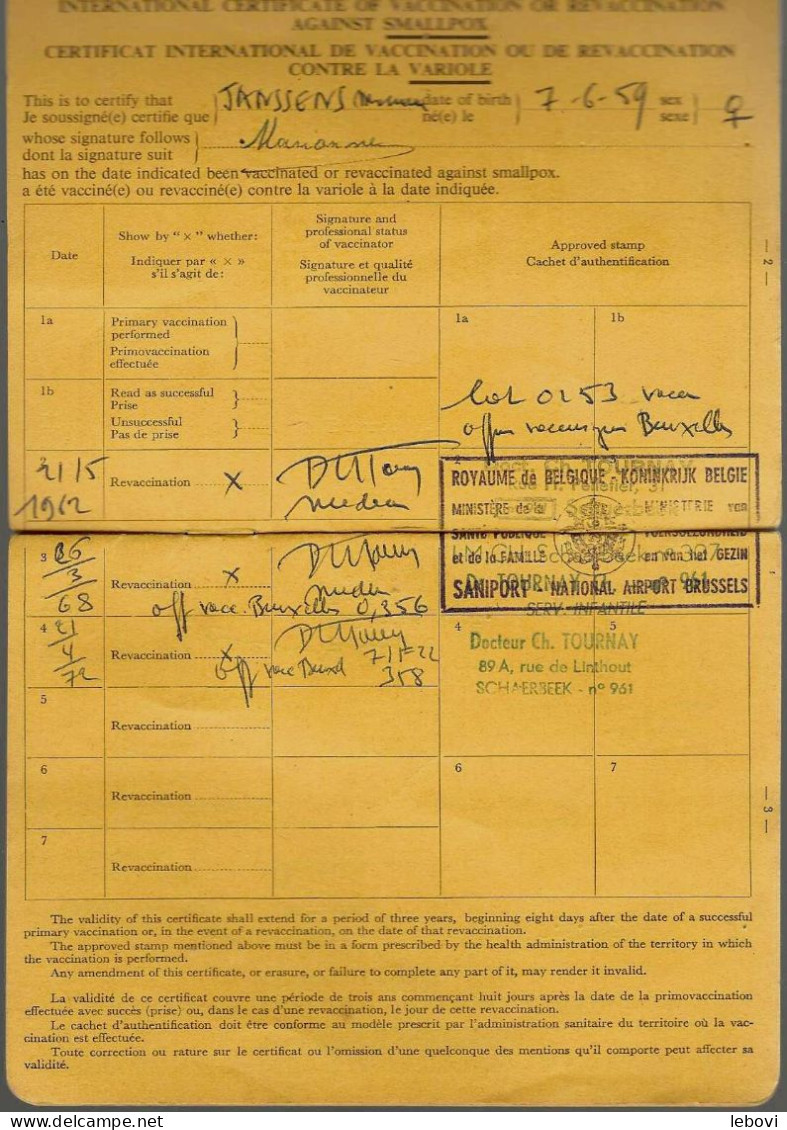 INTERNATIONAL CERTIFICATE OF VACCINATION OR REVACCINATION
AGAINST SMALLPOX
CERTIFICAT INTERNATIONAL DE VACCINATION OU DE REVACCINATION
CONTRE LA VARIOLE
This is to certify that
Je soussigné(e) certifie que
JANSSENS
date of birth
né(e) le
7-6-59
sex
sexe
♀
whose signature follows
dont la signature suit
Marianne
has on the date indicated been vaccinated or revaccinated against smallpox.
a été vacciné(e) ou revacciné(e) contre la variole à la date indiquée.
Date
Show by "×" whether:
Indiquer par «×»
s'il s'agit de:
Signature and
professional status
of vaccinator
Signature et qualité
professionnelle du
vaccinateur
Approved stamp
Cachet d'authentification
— 2 —
1a
Primary vaccination
performed
Primovaccination
effectuée
1a
1b
1b
Read as successful
Prise
Unsuccessful
Pas de prise
Lot 0253
Bruxelles
21/5
1962
Revaccination
×
2
ROYAUME de BELGIQUE - KONINKRIJK BELGIE
MINISTÈRE de la
MINISTERIE van
SANTÉ PUBLIQUE
VOLKSGEZONDHEID
et de la FAMILLE
en van het GEZIN
SANIPORT - NATIONAL AIRPORT BRUSSELS
Dr TOURNAY
n° 961
SERV. INFANTILE
3
26
3
68
Revaccination
×
off vacc. Bruxelles 0,356
4
21
4
72
Revaccination
×
off vacc
358
4
5
Docteur Ch. TOURNAY
89 A, rue de Linthout
SCHAERBEEK - n° 961
5
Revaccination
6
Revaccination
6
7
7
Revaccination
— 3 —
The validity of this certificate shall extend for a period of three years, beginning eight days after the date of a successful
primary vaccination or, in the event of a revaccination, on the date of that revaccination.
The approved stamp mentioned above must be in a form prescribed by the health administration of the territory in which
the vaccination is performed.
Any amendment of this certificate, or erasure, or failure to complete any part of it, may render it invalid.
La validité de ce certificat couvre une période de trois ans commençant huit jours après la date de la primovaccination
effectuée avec succès (prise) ou, dans le cas d'une revaccination, le jour de cette revaccination.
Le cachet d'authentification doit être conforme au modèle prescrit par l'administration sanitaire du territoire où la vac-
cination est effectuée.
Toute correction ou rature sur le certificat ou l'omission d'une quelconque des mentions qu'il comporte peut affecter sa
validité.
lebovi